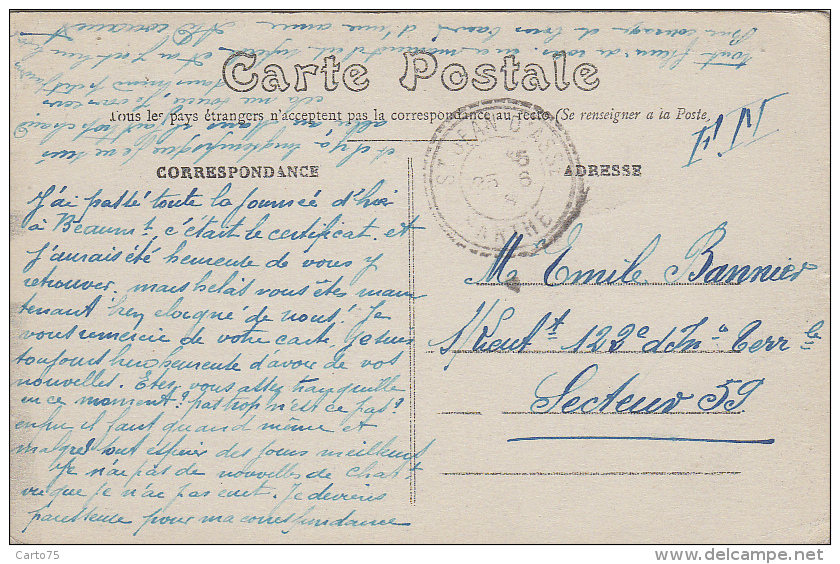 Carte Postale
Tous les pays étrangers n'acceptent pas la correspondance au recto (Se renseigner à la Poste)
F.M
CORRESPONDANCE
ADRESSE
ST JEAN D'ASSÉ
25 6
SARTHE
J'ai passé toute la journée d'hier
à Beaumt, c'était le certificat, et
j'aurais été heureuse de vous y
retrouver, mais hélas vous êtes main
tenant bien éloigné de nous! Je
vous remercie de votre carte, je suis
toujours très heureuse d'avoir de vos
nouvelles. Êtes vous assez tranquille
en ce moment? pas trop n'est ce pas?
enfin il faut quand même et
malgré tout espérer des jours meilleurs
Je n'ai pas de nouvelles de
vu que je n'ai pas écrit. Je deviens
paresseuse pour ma correspondance
et il y a longtemps que je ne suis
allée au Mans il fait trop chaud
Mr Emile Bannier
s/Lieutt 122e d'Inf Terr
Secteur 59
Carto75
delcampe.net